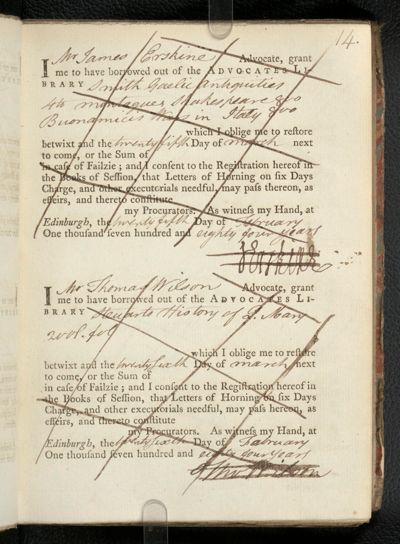 14.
I Mr James Erskine Advocate, grant
me to have borrowed out of the ADVOCATES LI-
BRARY Smith Gaelic Antiquities
4to Montagues Shakespeare 8vo
Buonamicis in Italy 8vo
which I oblige me to reſtore
betwixt and the twenty fifth Day of march next
to come, or the Sum of
in caſe of Failzie; and I conſent to the Regiſtration hereof in
the Books of Seſſion, that Letters of Horning on ſix Days
Charge, and other executorials needful, may paſs thereon, as
effeirs, and thereto conſtitute
my Procurators. As witneſs my Hand, at
Edinburgh, the twenty fifth Day of February
One thouſand ſeven hundred and eighty four years
I Mr Thomas Wilson Advocate, grant
me to have borrowed out of the ADVOCATES LI-
BRARY Stewarts History of Q. Mary
2 vols.
which I oblige me to reſtore
betwixt and the twenty sixth Day of march next
to come, or the Sum of
in caſe of Failzie; and I conſent to the Regiſtration hereof in
the Books of Seſſion, that Letters of Horning on ſix Days
Charge, and other executorials needful, may paſs thereon, as
effeirs, and thereto conſtitute
my Procurators. As witneſs my Hand, at
Edinburgh, the twenty sixth Day of February
One thouſand ſeven hundred and eighty four years
Wilson